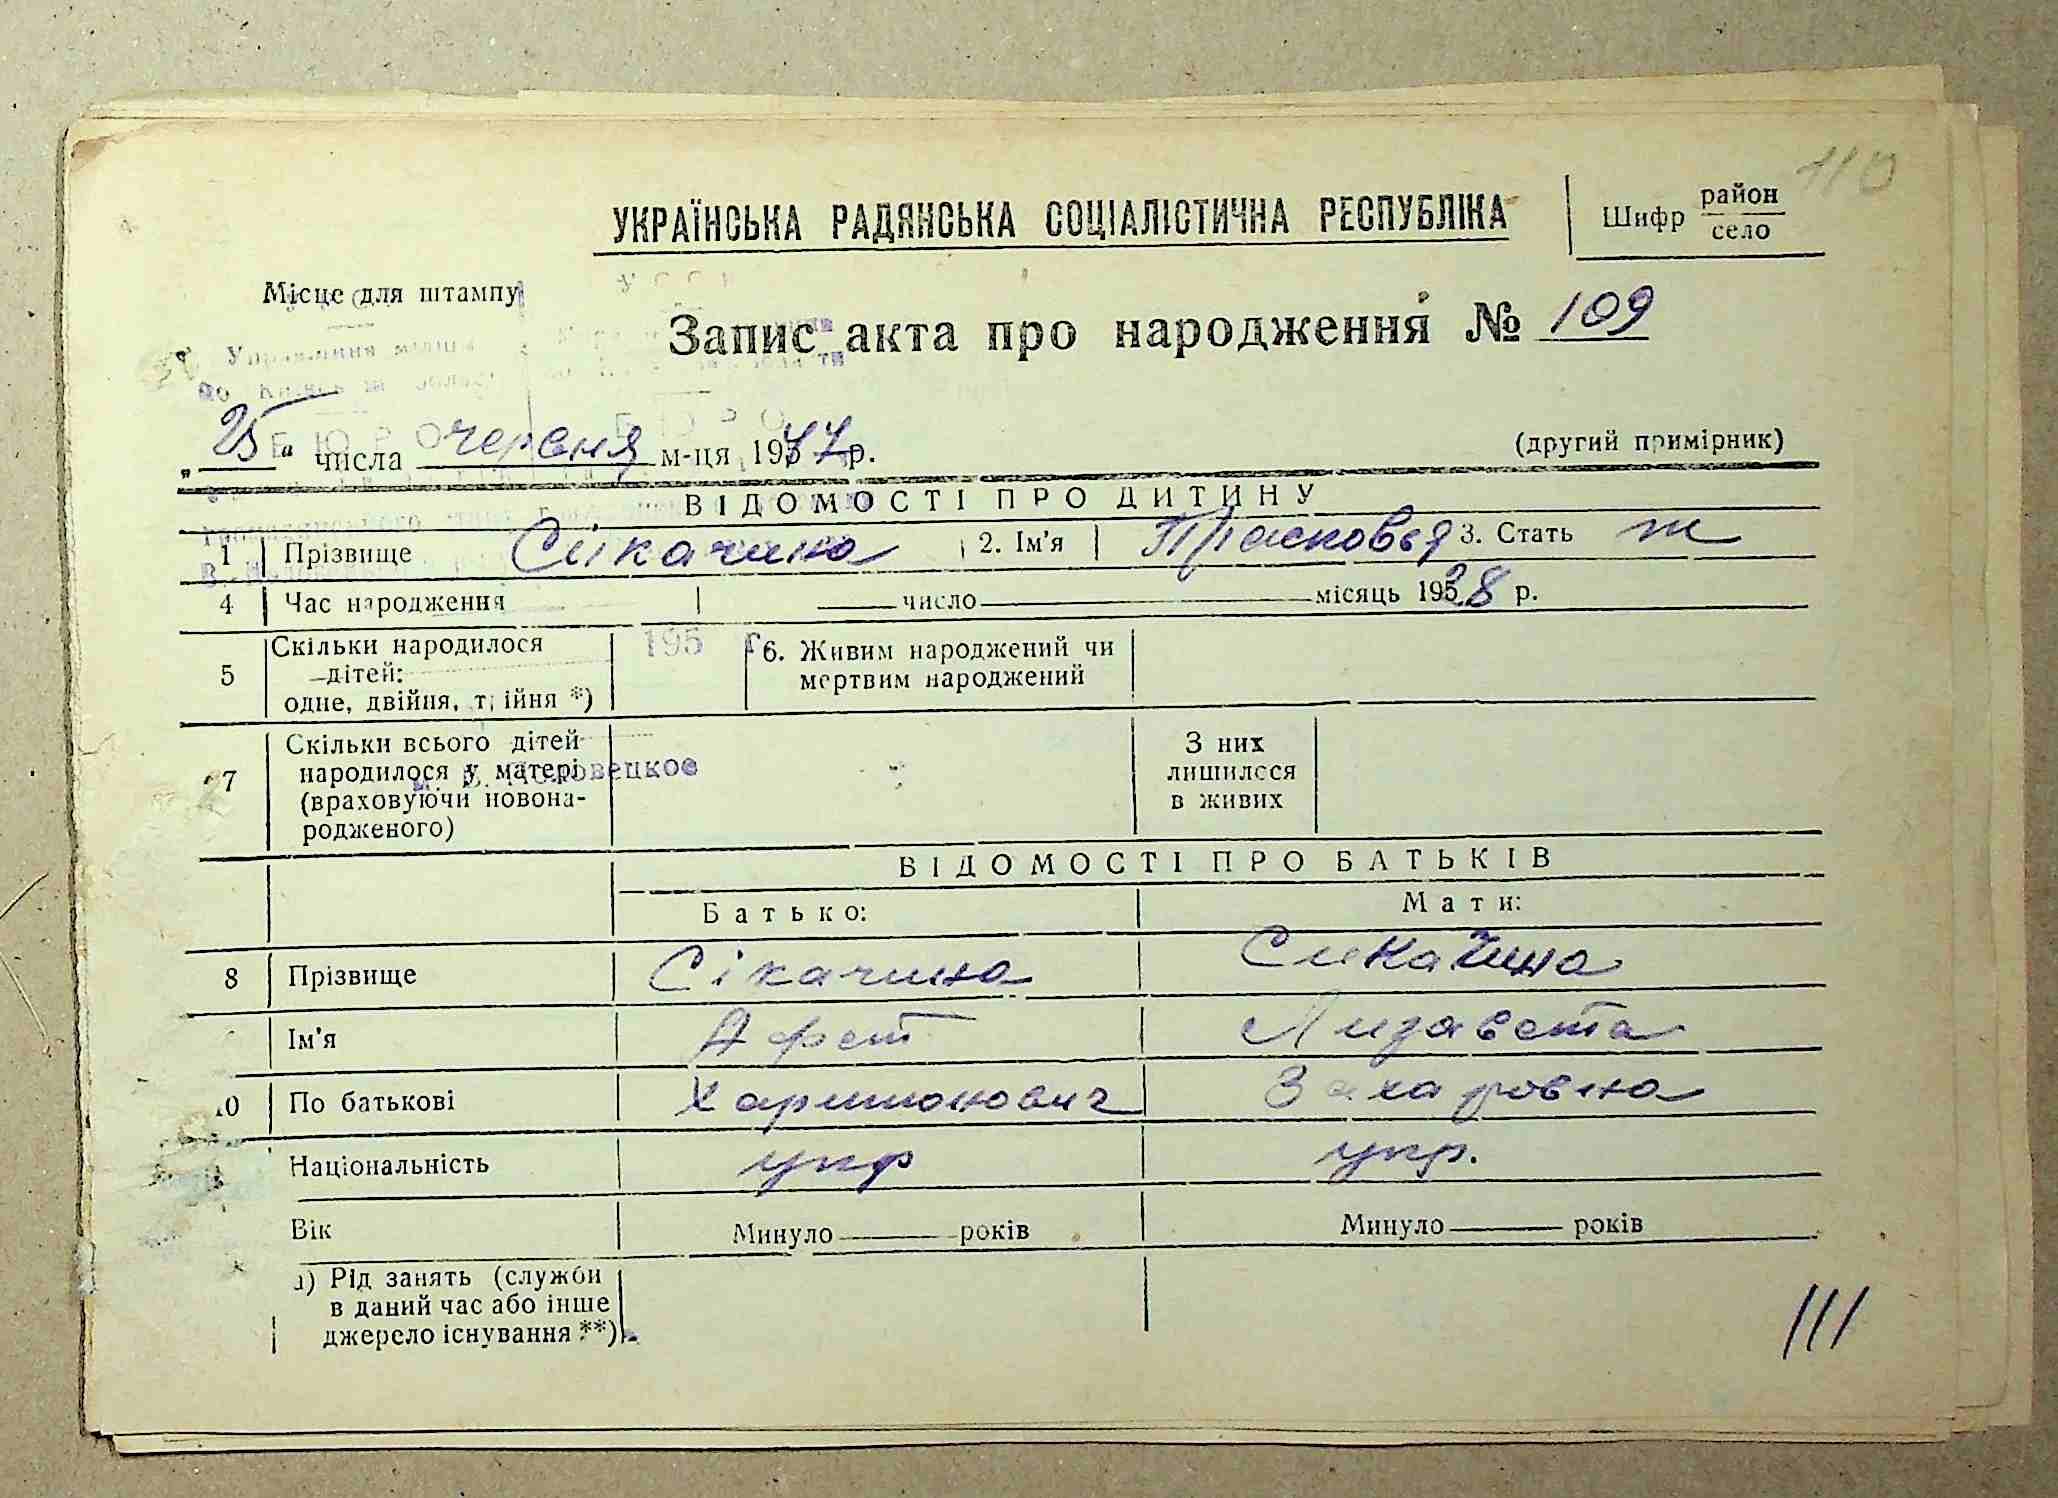 110
УКРАЇНСЬКА РАДЯНСЬКА СОЦІАЛІСТИЧНА РЕСПУБЛІКА
Шифр район
село
Місце для штампу
Запис акта про народження № 109
„25" числа червня м-ця 1977 р.
(другий примірник)
ВІДОМОСТІ ПРО ДИТИНУ
1 Прізвище Сікачина 2. Ім'я Прасковья 3. Стать ж
4 Час народження число місяць 1938 р.
5 Скільки народилося дітей:
одне, двійня, трійня *)
195
6. Живим народжений чи
мертвим народжений
7 Скільки всього дітей
народилося у матері
(враховуючи новона-
родженого)
З них
лишилося
в живих
ВІДОМОСТІ ПРО БАТЬКІВ
Батько: Мати:
8 Прізвище Сікачина Сикачина
Ім'я Лизавета
10 По батькові Харитонович Захаровна
Національність укр укр.
Вік Минуло років Минуло років
а) Рід занять (служби
в даний час або інше
джерело існування **)
111